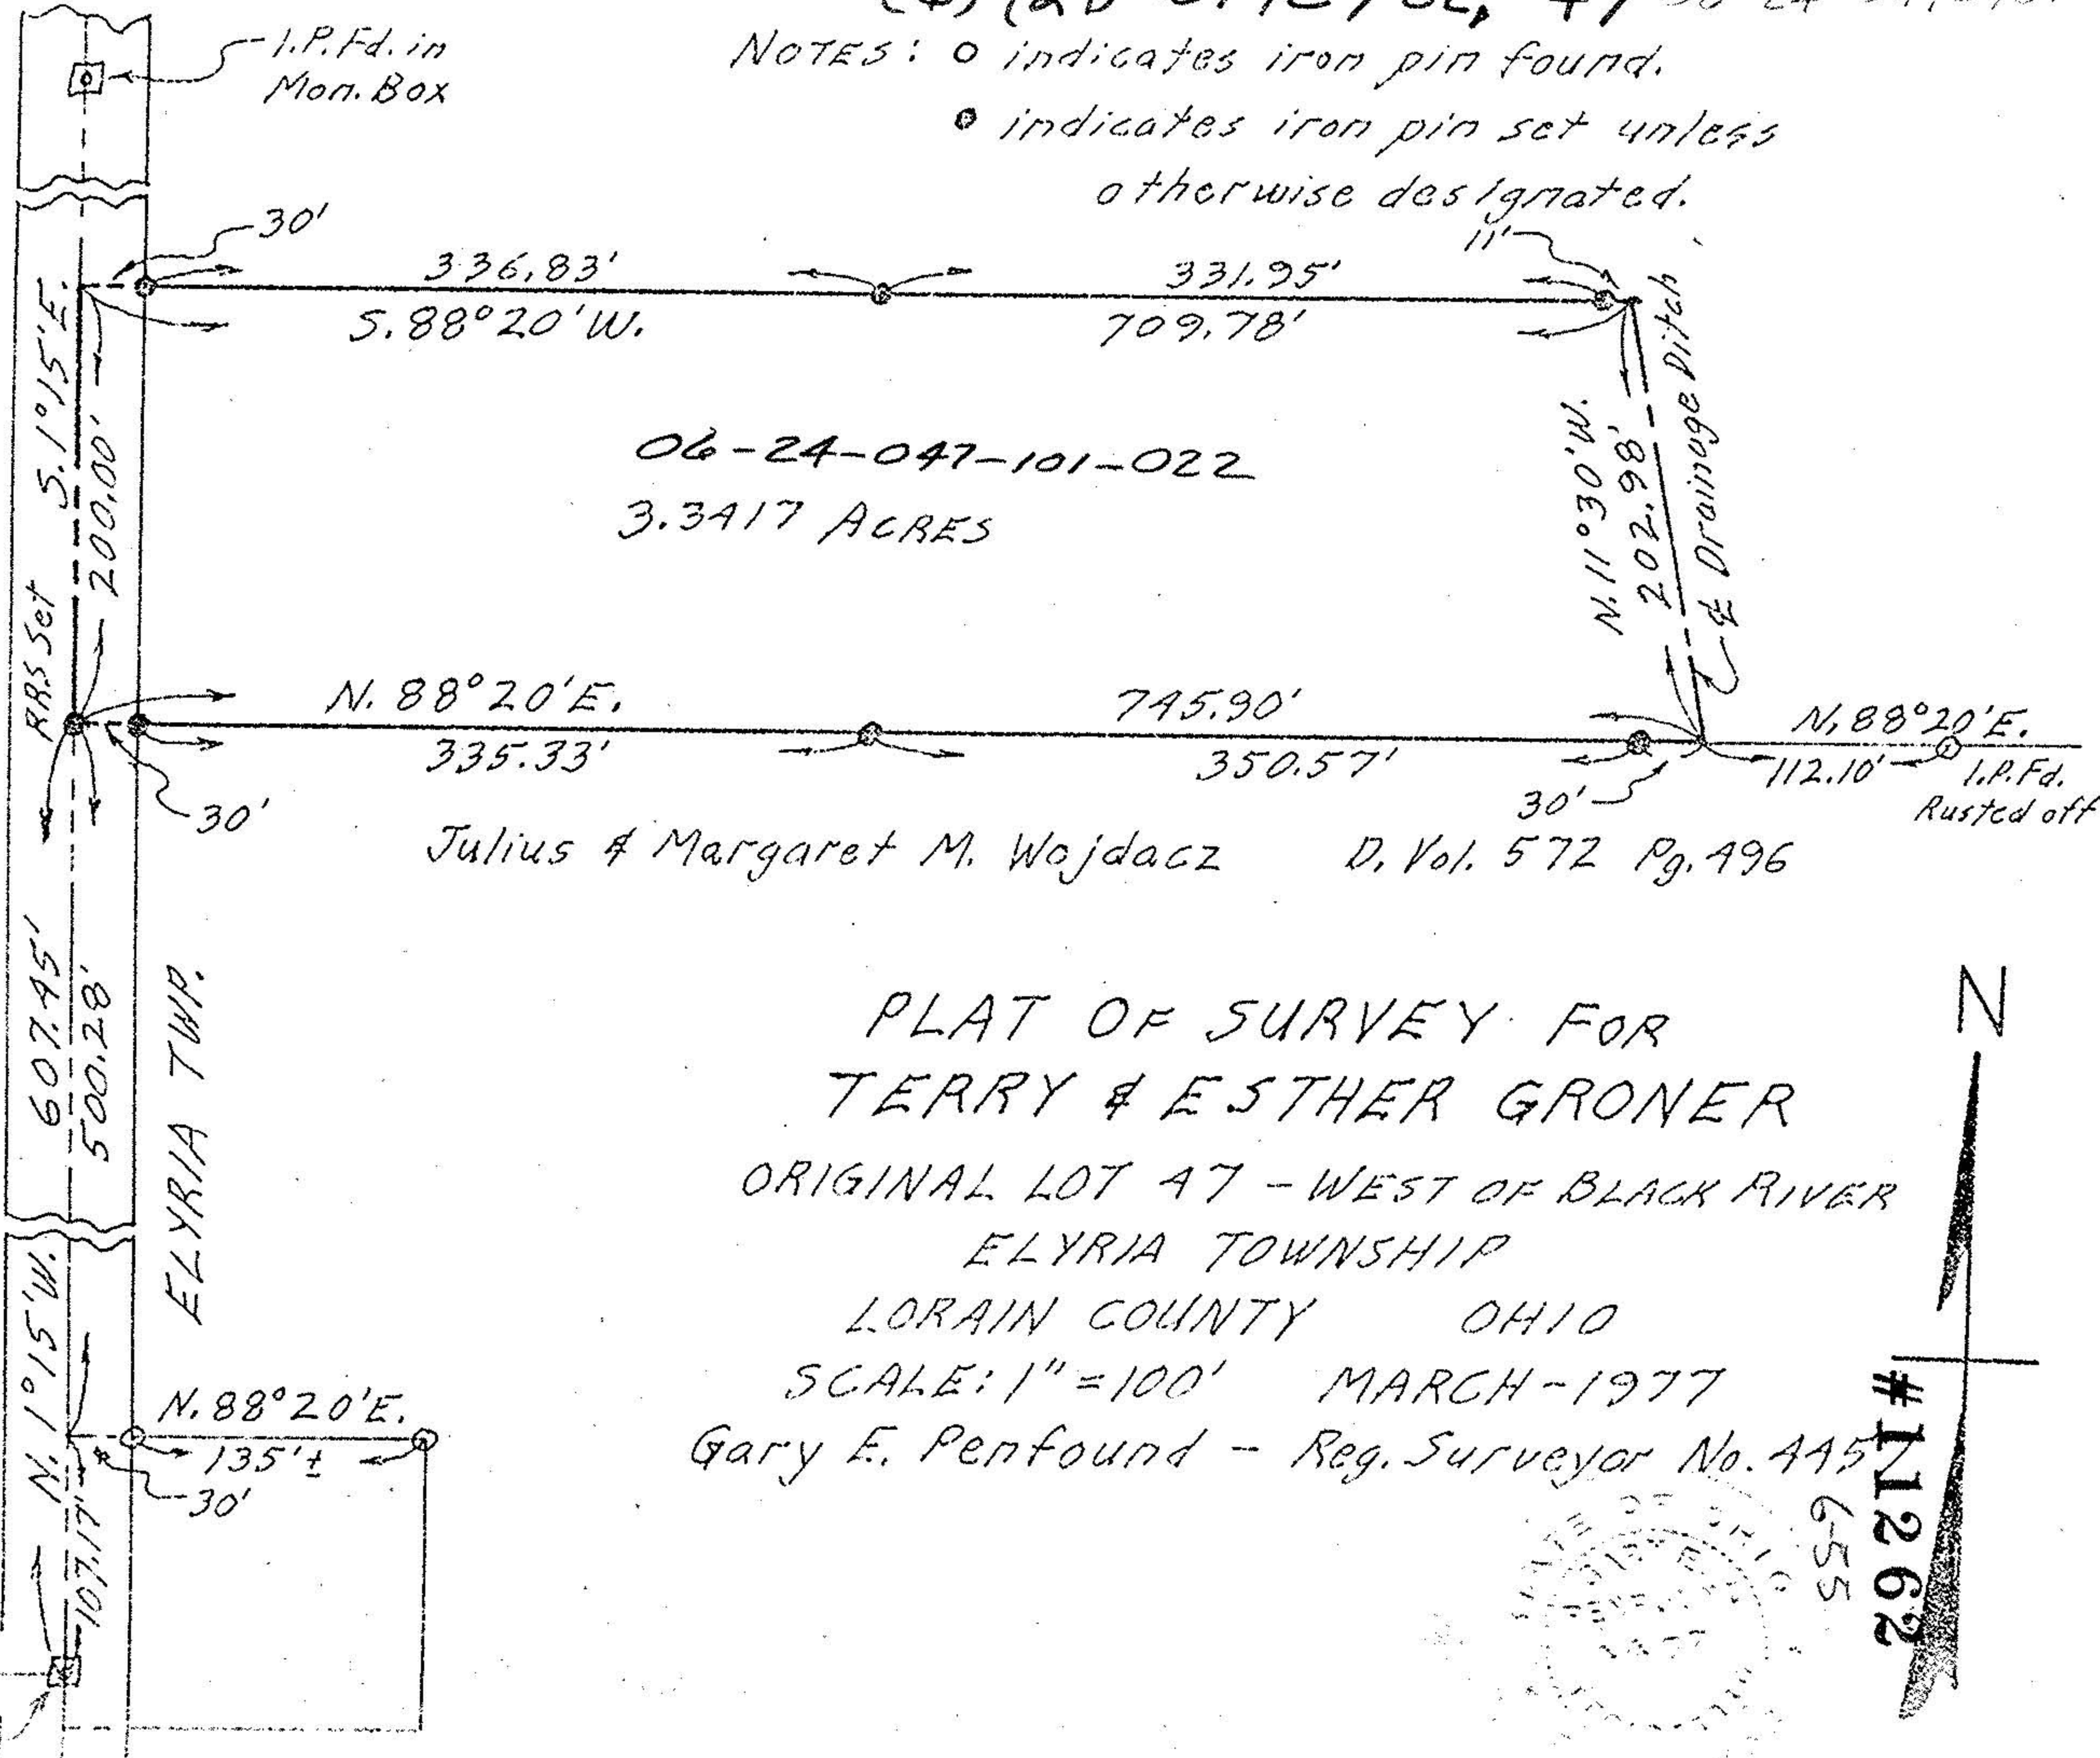 NOTES: o indicates iron pin found.
• indicates iron pin set unless
otherwise designated.
I.P.Fd. in
Mon. Box
30'
11'
336.83'
331.95'
S.88°20'W.
709.78'
S.1°15'E.
200.00'
RRS Set
06-24-047-101-022
3.3417 ACRES
N.11°30'W.
202.98'
℄ Drainage Ditch
N. 88°20'E.
745.90'
335.33'
350.57'
30'
30'
N.88°20'E.
112.10'
I.P.Fd.
Rusted off
Julius & Margaret M. Wojdacz D. Vol. 572 Pg. 496
607.45'
500.28'
ELYRIA TWP.
N.1°15'W.
107.17'
N.88°20'E.
135'±
30'
N
PLAT OF SURVEY FOR
TERRY & ESTHER GRONER
ORIGINAL LOT 47 - WEST OF BLACK RIVER
ELYRIA TOWNSHIP
LORAIN COUNTY OHIO
SCALE: 1"=100' MARCH-1977
Gary E. Penfound - Reg. Surveyor No. 445
#11262
6-55